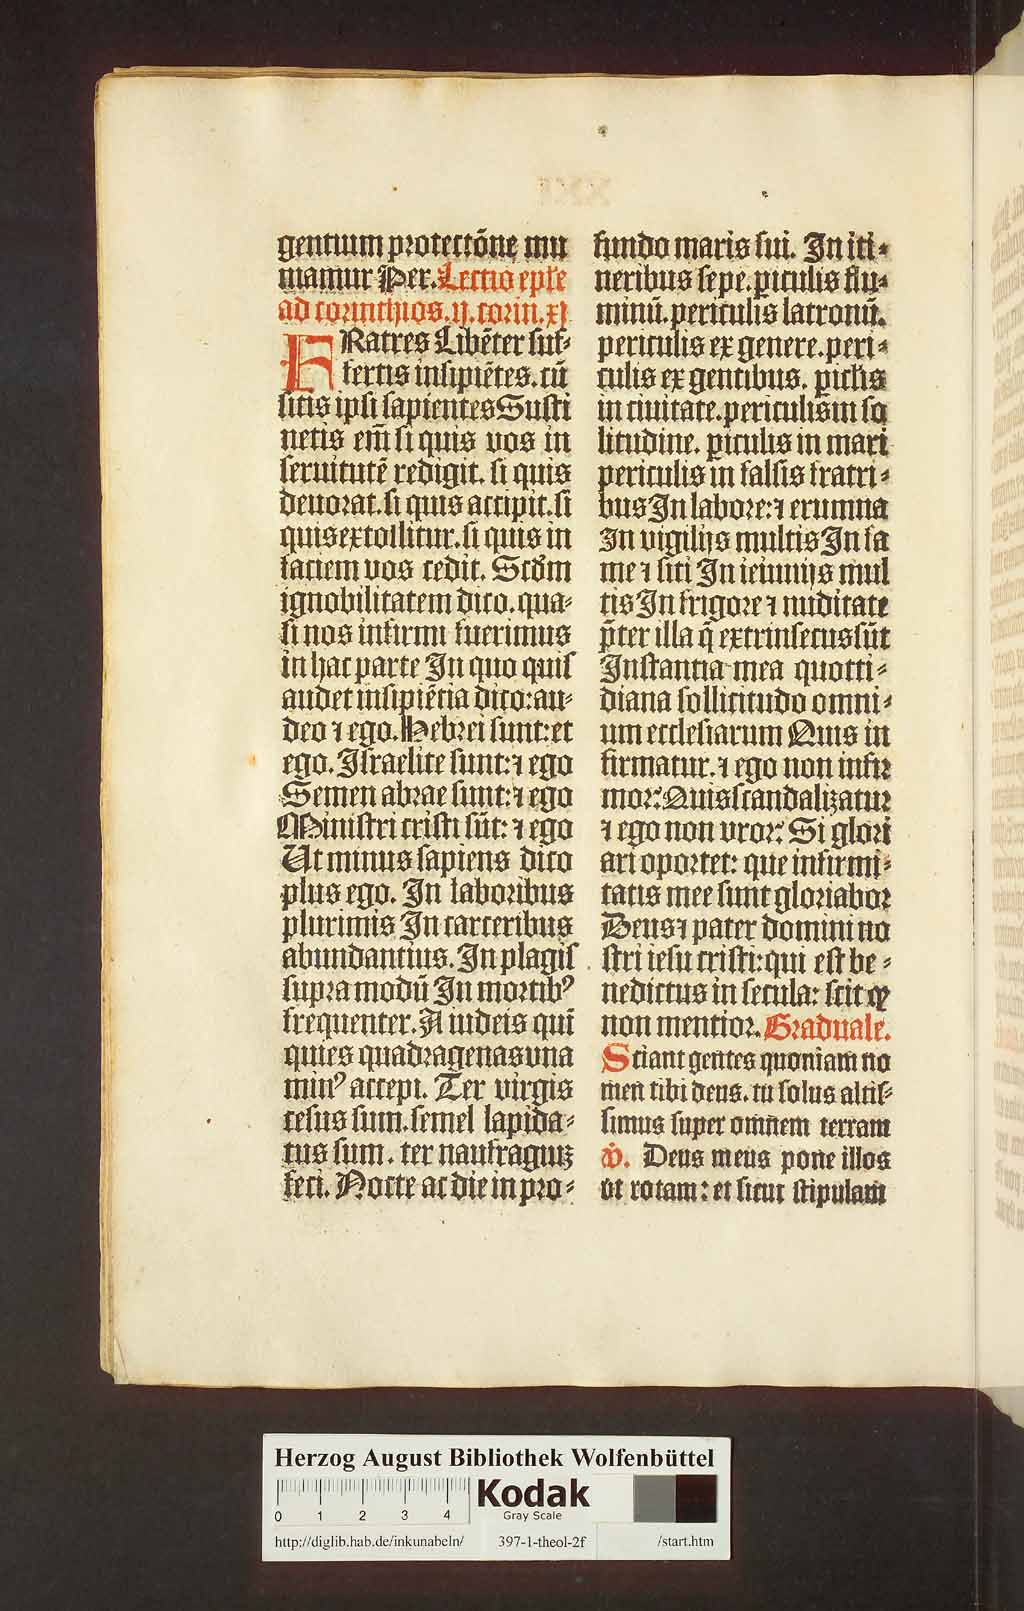 gentium protectōne mu
niamur Per. Lectio epłe
ad corinthios. ij. corin. xj
FRatres Libēter suf-
fertis insipiētes. cū
sitis ipsi sapientes Susti
netis em̄ si quis vos in
seruitutē redigit. si quis
deuorat. si quis accipit. si
quis extollitur. si quis in
faciem vos cedit. Scd̄m
ignobilitatem dico. qua-
si nos infirmi fuerimus
in hac parte In quo quis
audet insipiētia dico: au-
deo ⁊ ego. Hebrei sunt: et
ego. Israelite sunt: ⁊ ego
Semen abrae sunt: ⁊ ego
Ministri cristi sūt: ⁊ ego
Ut minus sapiens dico
plus ego. In laboribus
plurimis In carceribus
abundantius. In plagis
supra modū In mortibꝰ
frequenter. A iudeis qui
quies quadragenas vna
minꝰ accepi. Ter virgis
cesus sum. semel lapida-
tus sum. ter naufragiuꝫ
feci. Nocte ac die in pro-
fundo maris fui. In iti-
neribus sepe. ꝑiculis flu-
minū. periculis latronū.
periculis ex genere. peri-
culis ex gentibus. ꝑiclis
in ciuitate. periculis in so
litudine. ꝑiculis in mari
periculis in falsis fratri-
bus In labore: ⁊ erumna
In vigilijs multis In fa
me ⁊ siti In ieiunijs mul
tis In frigore ⁊ nuditate
p̄ter illa q̄ extrinsecus sūt
Instantia mea quotti-
diana sollicitudo omni-
um ecclesiarum Quis in
firmatur. ⁊ ego non infir
mor: Quis scandalizatur
⁊ ego non vror: Si glori
ari oportet: que infirmi-
tatis mee sunt gloriabor
Deus ⁊ pater domini no
stri iesu cristi: qui est be-
nedictus in secula: scit ꝙ
non mentior. Graduale.
Sciant gentes quoniam no
men tibi deus. tu solus altis-
simus super omnem terram
℣. Deus meus pone illos
vt rotam: et sicut stipulam
Herzog August Bibliothek Wolfenbüttel
0 1 2 3 4
Kodak
Gray Scale
http://diglib.hab.de/inkunabeln/ 397-1-theol-2f /start.htm